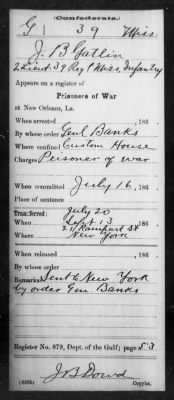 (Confederate.)
G 39 Miss.
J. B Gatlin
2 Lieut. 39 Reg't Miss. Infantry
Appears on a register of
Prisoners of War
at New Orleans, La.
When arrested , 186 .
By whose order Genl Banks
Where confined Custom House
Charges Prisoner of war
When committed July 16 , 186 .
Place of sentence
Transferred: July 20
When Sept 13 , 186 .
Where 21 Rampart St
New York
When released , 186 .
By whose order
Remarks: Sent to New York
by order Gen Banks
Register No. 879, Dept. of the Gulf; page 53
J B Dowd
Copyist.